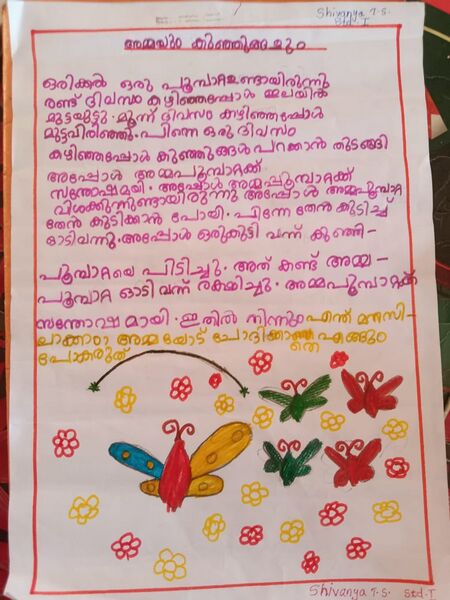 Shivanya T.S.
Std-I
അമ്മയും കുഞ്ഞുങ്ങളും
ഒരിക്കൽ ഒരു പൂമ്പാറ്റഉണ്ടായിരുന്നു
രണ്ട് ദിവസം കഴിഞ്ഞപ്പോൾ മ്മലയിൽ
മുട്ടയിട്ടു. മൂന്ന് ദിവസം കഴിഞ്ഞപ്പോൾ
മുട്ടവിരിഞ്ഞു. പിന്നെ ഒരു ദിവസം
കഴിഞ്ഞപ്പോൾ കുഞ്ഞുങ്ങൾ പറക്കാൻ തുടങ്ങി
അപ്പോൾ അമ്മപൂമ്പാറ്റക്ക്
സന്തോഷമായി. അപ്പോൾ അമ്മപ്പൂമ്പാറ്റക്ക്
വിശക്കുന്നുണ്ടായിരുന്നു അപ്പോൾ അമ്മപൂമ്പാറ്റ
തേൻ കുടിക്കാൻ പോയി. പിന്നേ തേൻ കുടിച്ച്
ഓടിവന്നു. അപ്പോൾ ഒരുകിളി വന്ന് കുഞ്ഞി-
പൂമ്പാറ്റയെ പിടിച്ചു. അത് കണ്ട് അമ്മ-
പൂമ്പാറ്റ ഓടി വന്ന് രക്ഷിച്ചു. അമ്മപൂമ്പാറ്റക്ക്
സന്തോഷമായി. ഇതിൽ നിന്നും എന്ത് മനസി-
ലാക്കാം അമ്മയോട് ചോദിക്കാതെ എങ്ങും
പോകരുത്
Shivanya T.S. Std-I